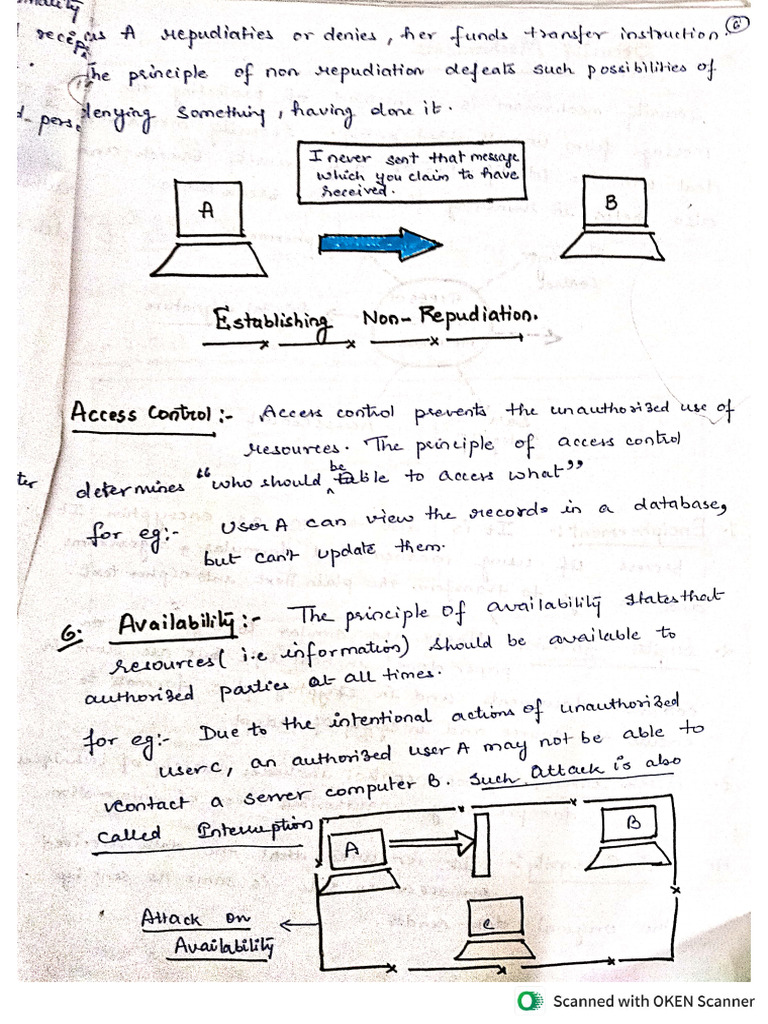 6
A repudiaties or denies, her funds transfer instruction.
The principle of non repudiation defeats such possibilities of
denying something, having done it.
I never sent that message
which you claim to have
received.
A
B
Establishing Non-Repudiation.
Access Control :- Access control prevents the unauthorized use of
resources. The principle of access control
determines "who should be able to access what"
for eg:- User A can view the records in a database,
but can't update them.
6. Availability :- The principle of availability states that
resources (i.e information) should be available to
authorized parties at all times.
for eg:- Due to the intentional actions of unauthorized
user c, an authorized user A may not be able to
contact a server computer B. Such attack is also
called Interruption
A
B
C
Attack on
Availability
Scanned with OKEN Scanner